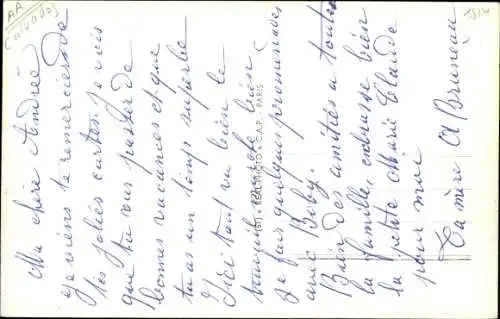 AA
Calvados
Ma chère Andrée
je viens te remercier de
tes jolies cartes. Je vois
que tu vas passer de
bonnes vacances et que
tu as un temps superbe
Ici tout va bien le
bien
je fais quelques promenades
avec Boby.
Bien des amitiés a toute
la famille, embrasse bien
la petite Marie Claude
pour moi
Ta mère A Bruneau
(51) • REAL-PHOTO • C.A.P. - PARIS